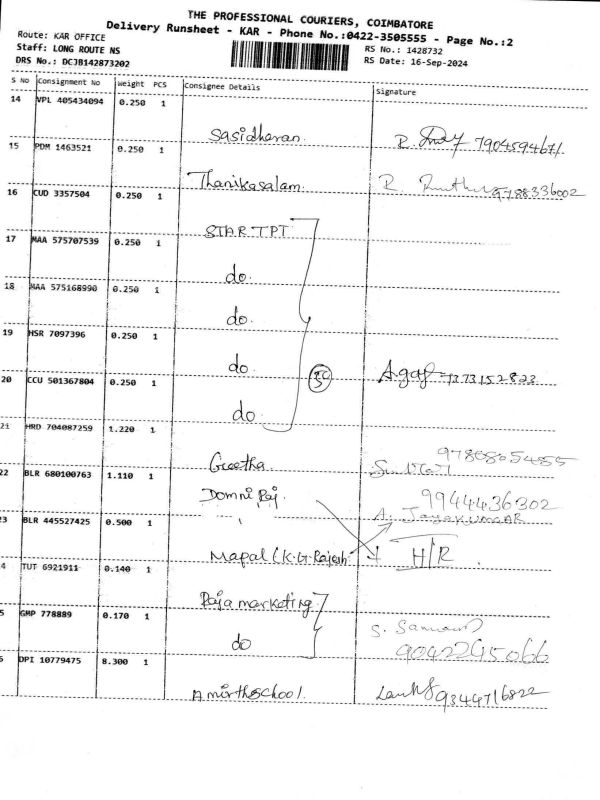 THE PROFESSIONAL COURIERS, COIMBATORE
Delivery Runsheet - KAR - Phone No.:0422-3505555 - Page No.:2
Route: KAR OFFICE
RS No.: 1428732
Staff: LONG ROUTE NS
RS Date: 16-Sep-2024
DRS No.: DCJB142873202
S No Consignment No Weight PCS Consignee Details Signature
14 VPL 405434094 0.250 1
Sasidharan 7904594671
15 PDM 1463521 0.250 1
Thanikasalam R. 9788336002
16 CUD 3357504 0.250 1
STAR TPT
17 MAA 575707539 0.250 1
do.
18 MAA 575168990 0.250 1
do.
19 HSR 7097396 0.250 1
do
20 CCU 501367804 0.250 1
do
21 HRD 704087259 1.220 1
Geetha
22 BLR 680100763 1.110 1
Domni Raj. 9944436302
A. JayakumAR
23 BLR 445527425 0.500 1
Mapal (K.G. Rajesh H/R
4 TUT 6921911 0.140 1
Raja marketing
5 GMP 778889 0.170 1
do 9042245066
6 DPI 10779475 8.300 1
Amirthschool 9344716822